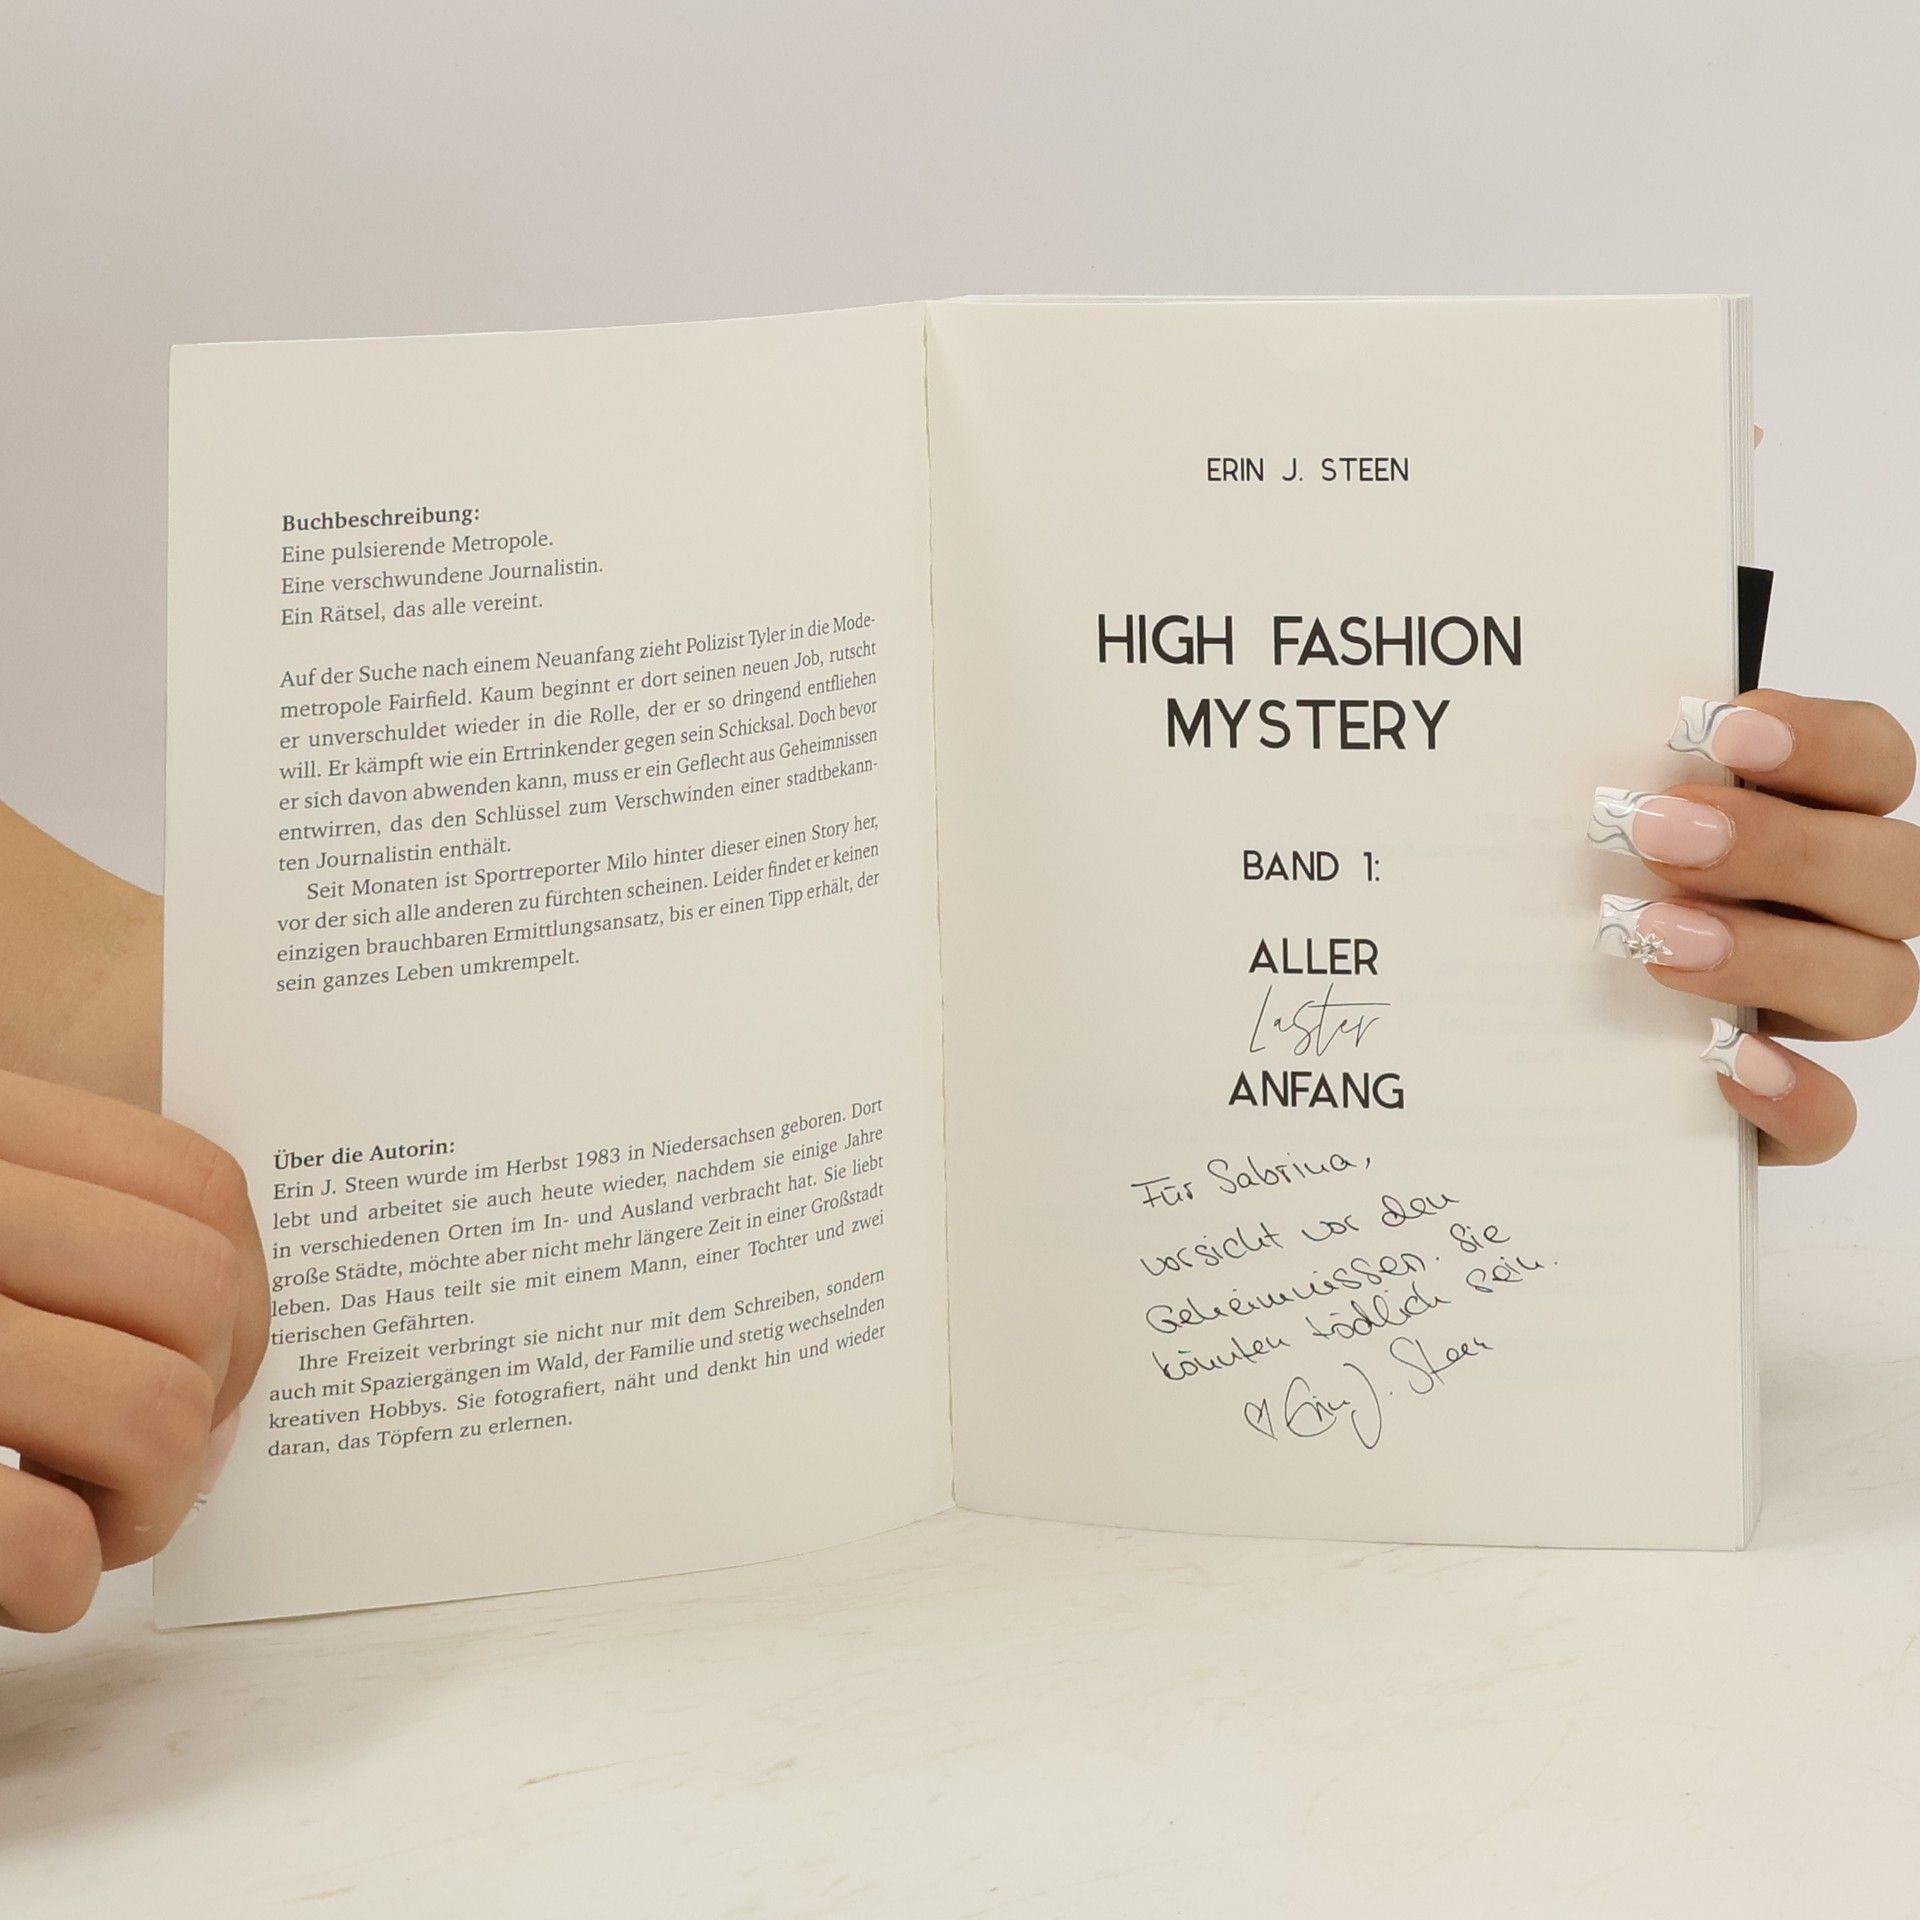 Buchbeschreibung:
Eine pulsierende Metropole.
Eine verschwundene Journalistin.
Ein Rätsel, das alle vereint.
Auf der Suche nach einem Neuanfang zieht Polizist Tyler in die Mode-
metropole Fairfield. Kaum beginnt er dort seinen neuen Job, rutscht
er unverschuldet wieder in die Rolle, der er so dringend entfliehen
will. Er kämpft wie ein Ertrinkender gegen sein Schicksal. Doch bevor
er sich davon abwenden kann, muss er ein Geflecht aus Geheimnissen
entwirren, das den Schlüssel zum Verschwinden einer stadtbekann-
ten Journalistin enthält.
Seit Monaten ist Sportreporter Milo hinter dieser einen Story her,
vor der sich alle anderen zu fürchten scheinen. Leider findet er keinen
einzigen brauchbaren Ermittlungsansatz, bis er einen Tipp erhält, der
sein ganzes Leben umkrempelt.
Über die Autorin:
Erin J. Steen wurde im Herbst 1983 in Niedersachsen geboren. Dort
lebt und arbeitet sie auch heute wieder, nachdem sie einige Jahre
in verschiedenen Orten im In- und Ausland verbracht hat. Sie liebt
große Städte, möchte aber nicht mehr längere Zeit in einer Großstadt
leben. Das Haus teilt sie mit einem Mann, einer Tochter und zwei
tierischen Gefährten.
Ihre Freizeit verbringt sie nicht nur mit dem Schreiben, sondern
auch mit Spaziergängen im Wald, der Familie und stetig wechselnden
kreativen Hobbys. Sie fotografiert, näht und denkt hin und wieder
daran, das Töpfern zu erlernen.
ERIN J. STEEN
HIGH FASHION
MYSTERY
BAND 1:
ALLER
Laster
ANFANG
Für Sabrina,
vorsicht vor den
Geheimnissen. Sie
könnten tödlich sein.
♡ Erin J. Steen